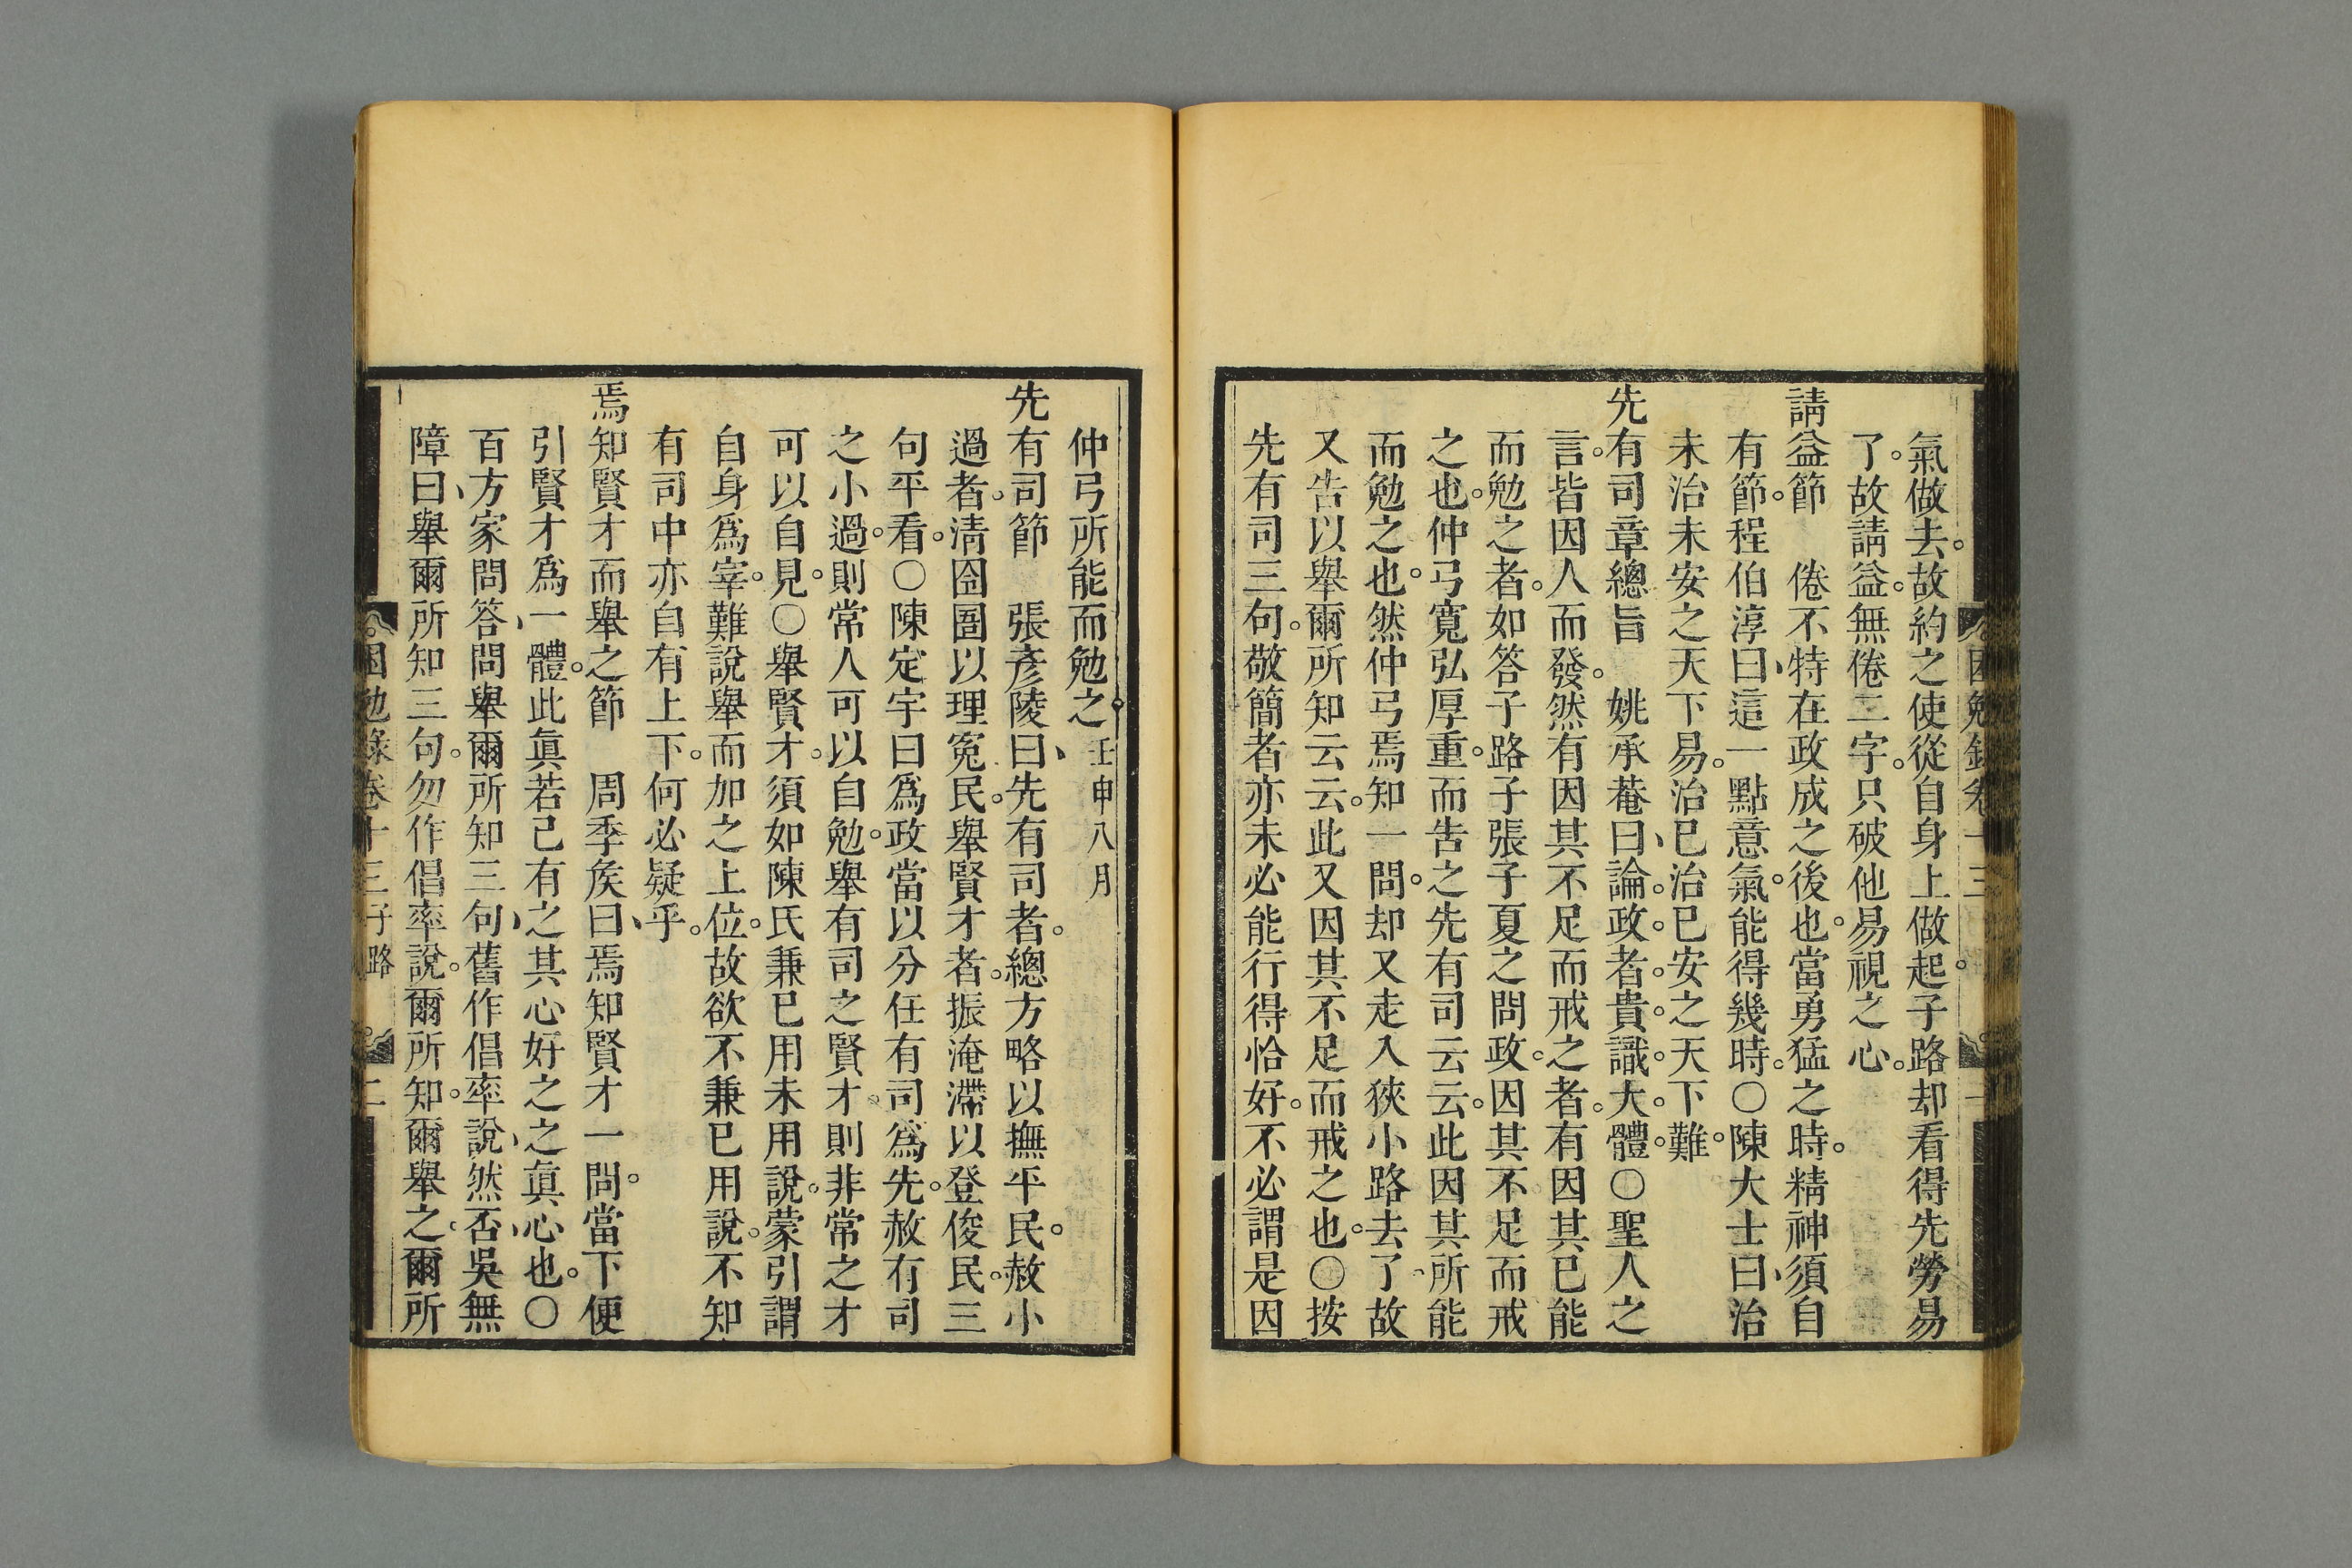 氣做去。故約之使從自身上做起。子路却看得先勞易
了。故請益。無倦二字。只破他易視之心。
請益節　倦不特在政成之後也。當勇猛之時。精神須自
有節。程伯淳曰、這一點意氣。能得幾時。○陳大士曰、治
未治未安之天下易。治已治已安之天下難。
先有司章總旨　姚承菴曰、論政者貴識大體。○聖人之
言。皆因人而發。然有因其不足而戒之者。有因其已能
而勉之者。如答子路子張子夏之問政。因其不足而戒
之也。仲弓寬弘厚重。而告之先有司云云。此因其所能
而勉之也。然仲弓焉知一問。却又走入狹小路去了、故
又告以舉爾所知云云。此又因其不足而戒之也。○按
先有司三句。敬簡者亦未必能行得恰好。不必謂是因
仲弓所能而勉之 壬申八月
先有司節　張彥陵曰、先有司者。總方略以撫平民。赦小
過者。清囹圄以理冤民。舉賢才者。振淹滯以登俊民。三
句平看。○陳定宇曰爲政當以分任有司爲先。赦有司
之小過。則常人可以自勉。舉有司之賢才。則非常之才
可以自見。○舉賢才。須如陳氏兼已用未用說。蒙引謂
自身爲宰。難說舉而加之上位。故欲不兼已用說。不知
有司中亦自有上下。何必疑乎。
焉知賢才而舉之節　周季矦曰、焉知賢才一問。當下便
引賢才爲一體。此眞若己有之其心好之之眞心也。○
百方家問答、問舉爾所知三句、舊作倡率說、然否、吳無
障曰、舉爾所知三句。勿作倡率說。爾所知。爾舉之。爾所
困勉錄卷十三 子路 二